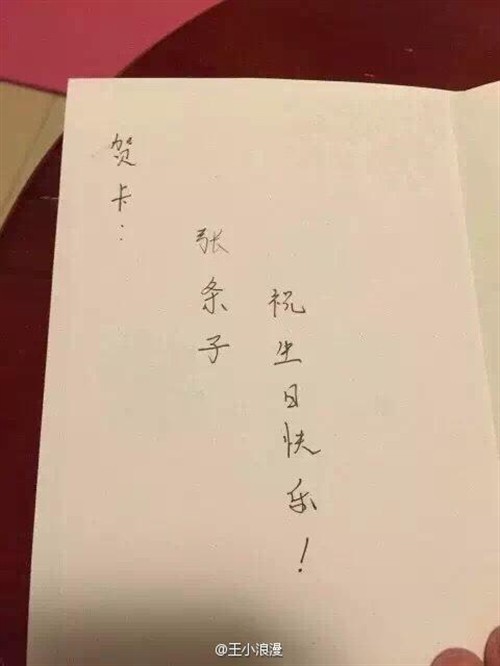 贺卡：
张条子
祝生日快乐！
@王小浪漫